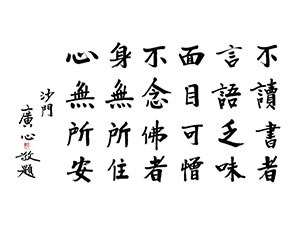 不讀書者
言語乏味
面目可憎
不念佛者
身無所住
心無所安
沙門
廣心敬題